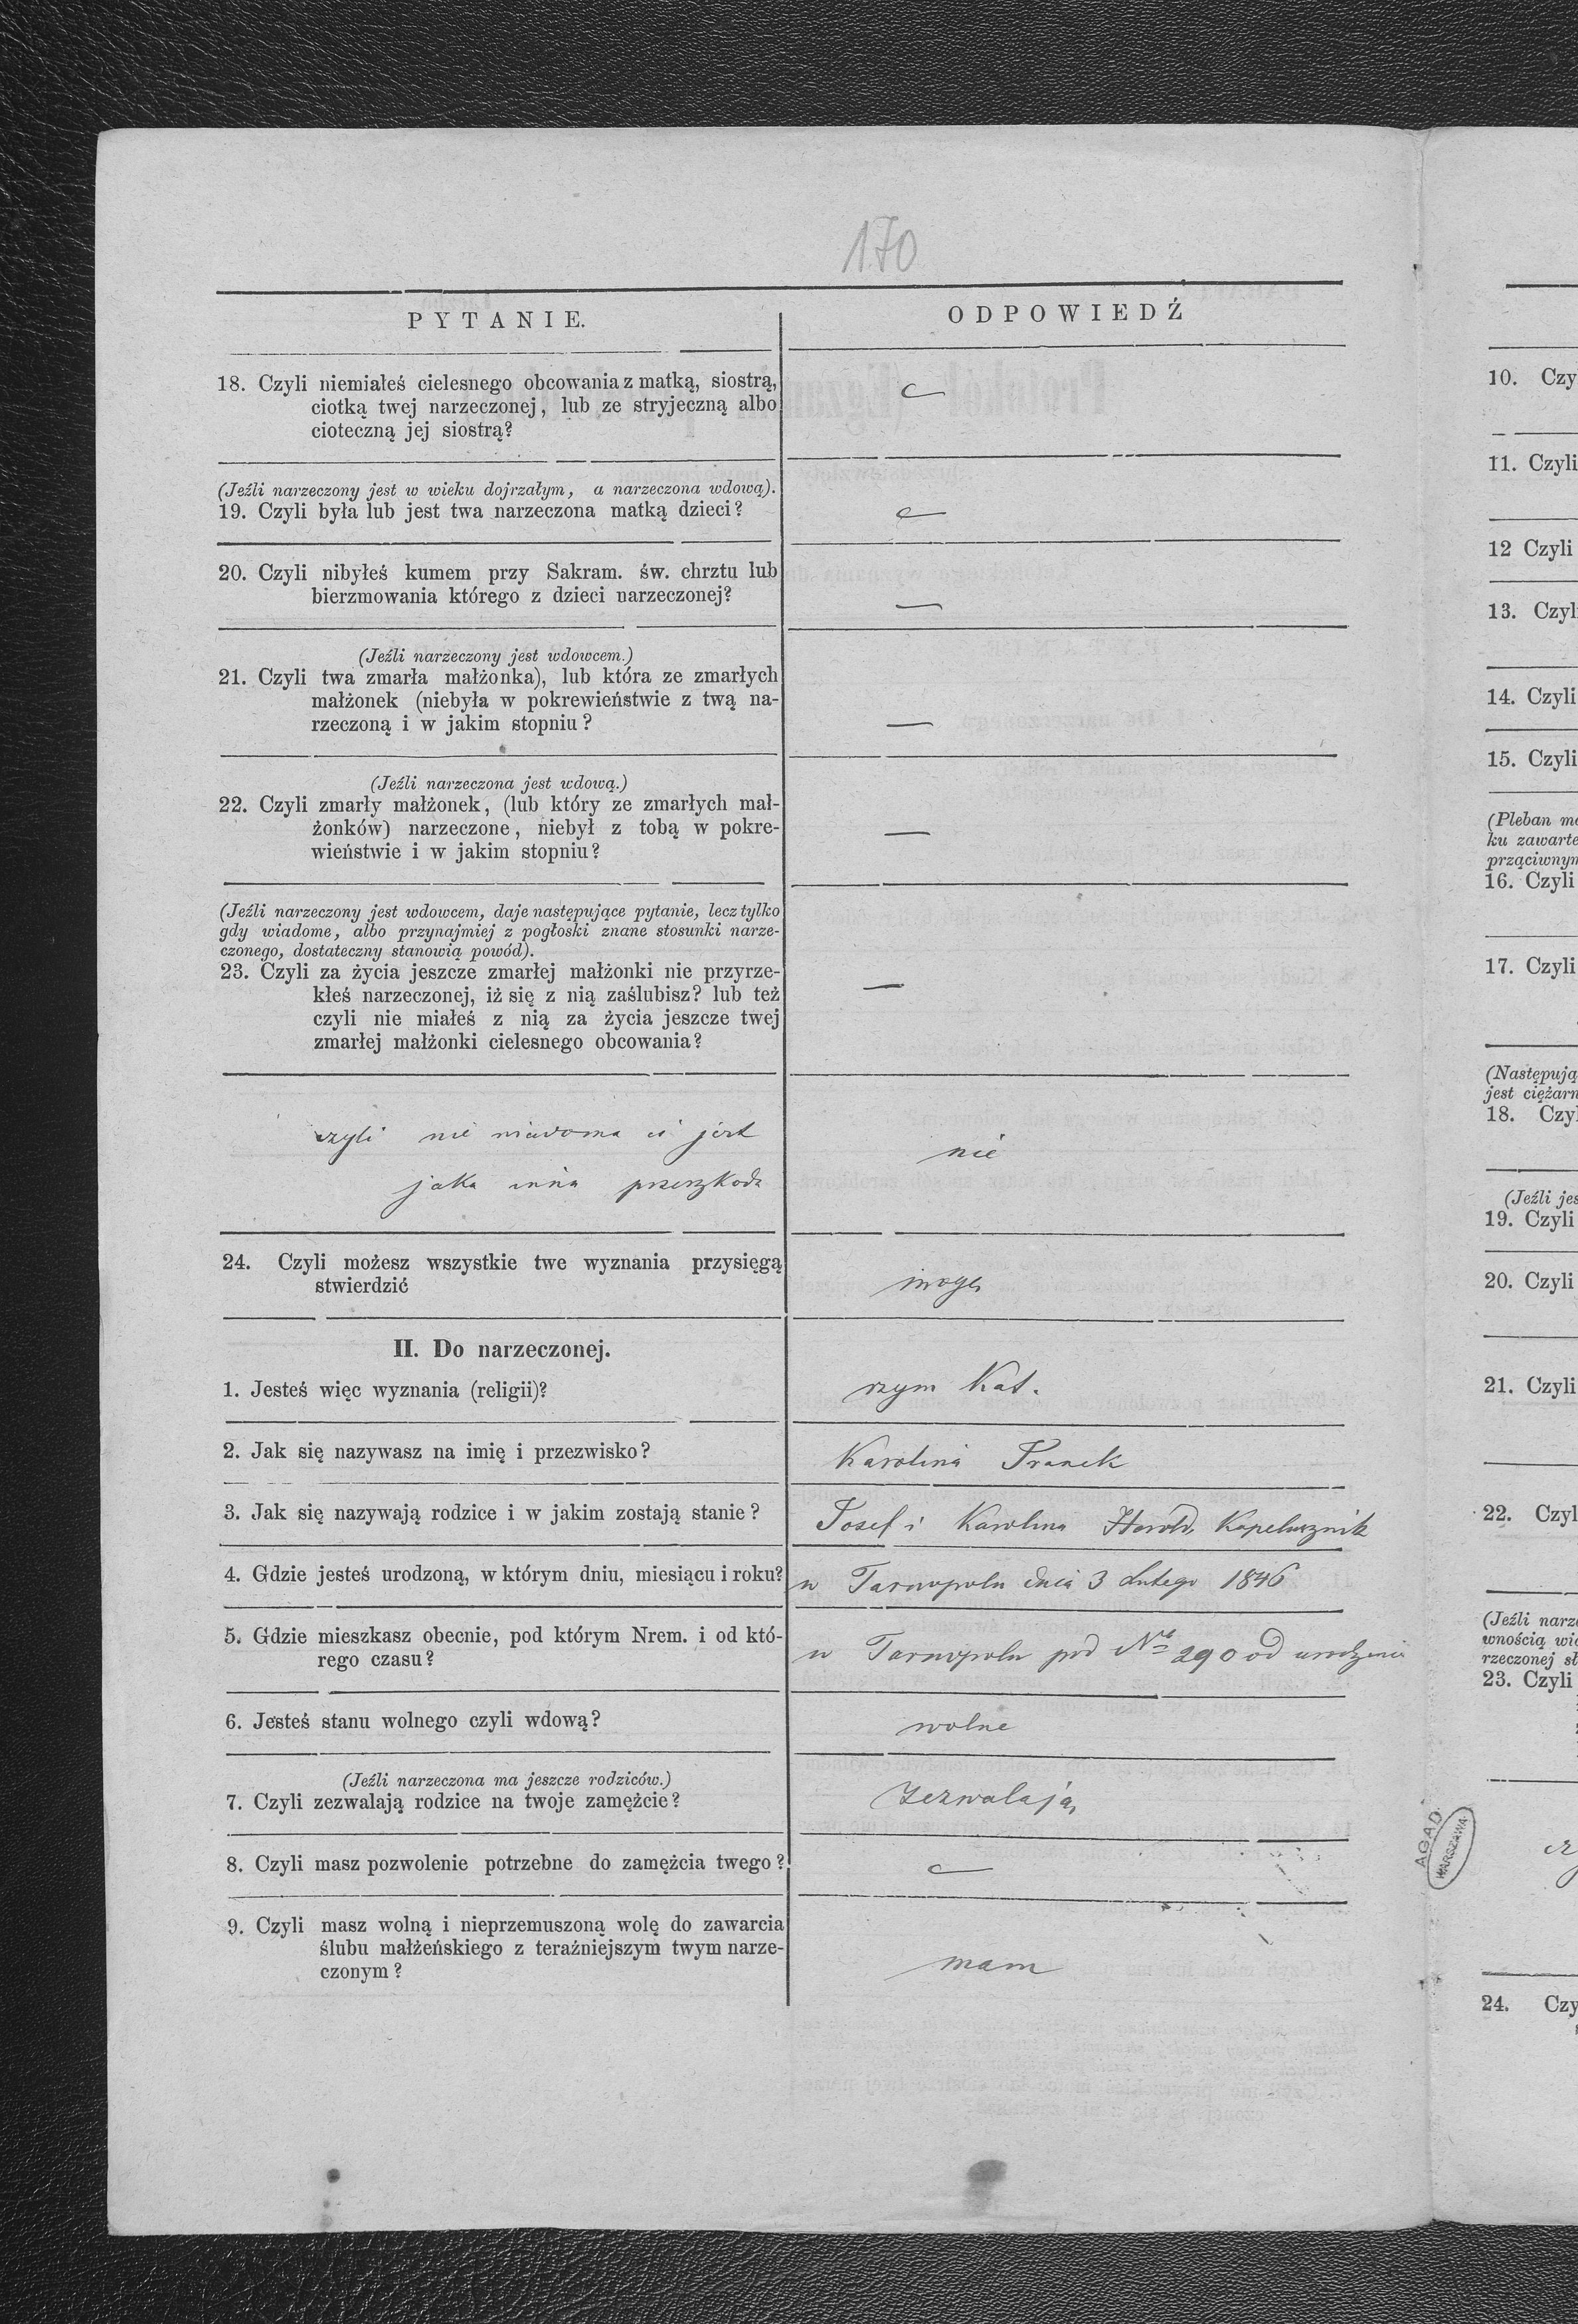 170
PYTANIE.
ODPOWIEDŹ
18. Czyli niemiałeś cielesnego obcowania z matką, siostrą,
ciotką twej narzeczonej, lub ze stryjeczną albo
cioteczną jej siostrą?
(Jeźli narzeczony jest w wieku dojrzałym, a narzeczona wdową).
19. Czyli była lub jest twa narzeczona matką dzieci?
20. Czyli nibyłeś kumem przy Sakram. św. chrztu lub
bierzmowania którego z dzieci narzeczonej?
—
(Jeźli narzeczony jest wdowcem.)
21. Czyli twa zmarła małżonka), lub która ze zmarłych
małżonek (niebyła w pokrewieństwie z twą na-
rzeczoną i w jakim stopniu?
—
(Jeźli narzeczona jest wdową.)
22. Czyli zmarły małżonek, (lub który ze zmarłych mał-
żonków) narzeczone, niebył z tobą w pokre-
wieństwie i w jakim stopniu?
—
(Jeźli narzeczony jest wdowcem, daje następujące pytanie, lecz tylko
gdy wiadome, albo przynajmiej z pogłoski znane stosunki narze-
czonego, dostateczny stanowią powód).
23. Czyli za życia jeszcze zmarłej małżonki nie przyrze-
kłeś narzeczonej, iż się z nią zaślubisz? lub też
czyli nie miałeś z nią za życia jeszcze twej
zmarłej małżonki cielesnego obcowania?
—
czyli nie wiadoma ci jest
jaka inna przeszkoda
nie
24. Czyli możesz wszystkie twe wyznania przysięgą
stwierdzić
mogę
II. Do narzeczonej.
1. Jesteś więc wyznania (religii)?
rzym Kat.
2. Jak się nazywasz na imię i przezwisko?
Karolina Franek
3. Jak się nazywają rodzice i w jakim zostają stanie?
Josef i Karolina Kapelusznik
4. Gdzie jesteś urodzoną, w którym dniu, miesiącu i roku?
w Tarnopolu dnia 3 Lutego 1846
5. Gdzie mieszkasz obecnie, pod którym Nrem. i od któ-
rego czasu?
w Tarnopolu pod No 290 od urodzenia
6. Jesteś stanu wolnego czyli wdową?
wolne
(Jeźli narzeczona ma jeszcze rodziców.)
7. Czyli zezwalają rodzice na twoje zamężcie?
Zezwalają
8. Czyli masz pozwolenie potrzebne do zamężcia twego?
9. Czyli masz wolną i nieprzemuszoną wolę do zawarcia
ślubu małżeńskiego z teraźniejszym twym narze-
czonym?
mam
A.G.A.D.
WARSZAWA
10. Czy
11. Czyli
12 Czyli
13. Czyl
14. Czyli
15. Czyli
(Pleban m
ku zawarte
prząciwnym
16. Czyli
17. Czyli
(Następują
jest ciężarn
18. Czyl
(Jeźli jes
19. Czyli
20. Czyli
21. Czyli
22. Czyl
(Jeźli narz
wnością wi
rzeczonej sł
23. Czyli
24. Czy